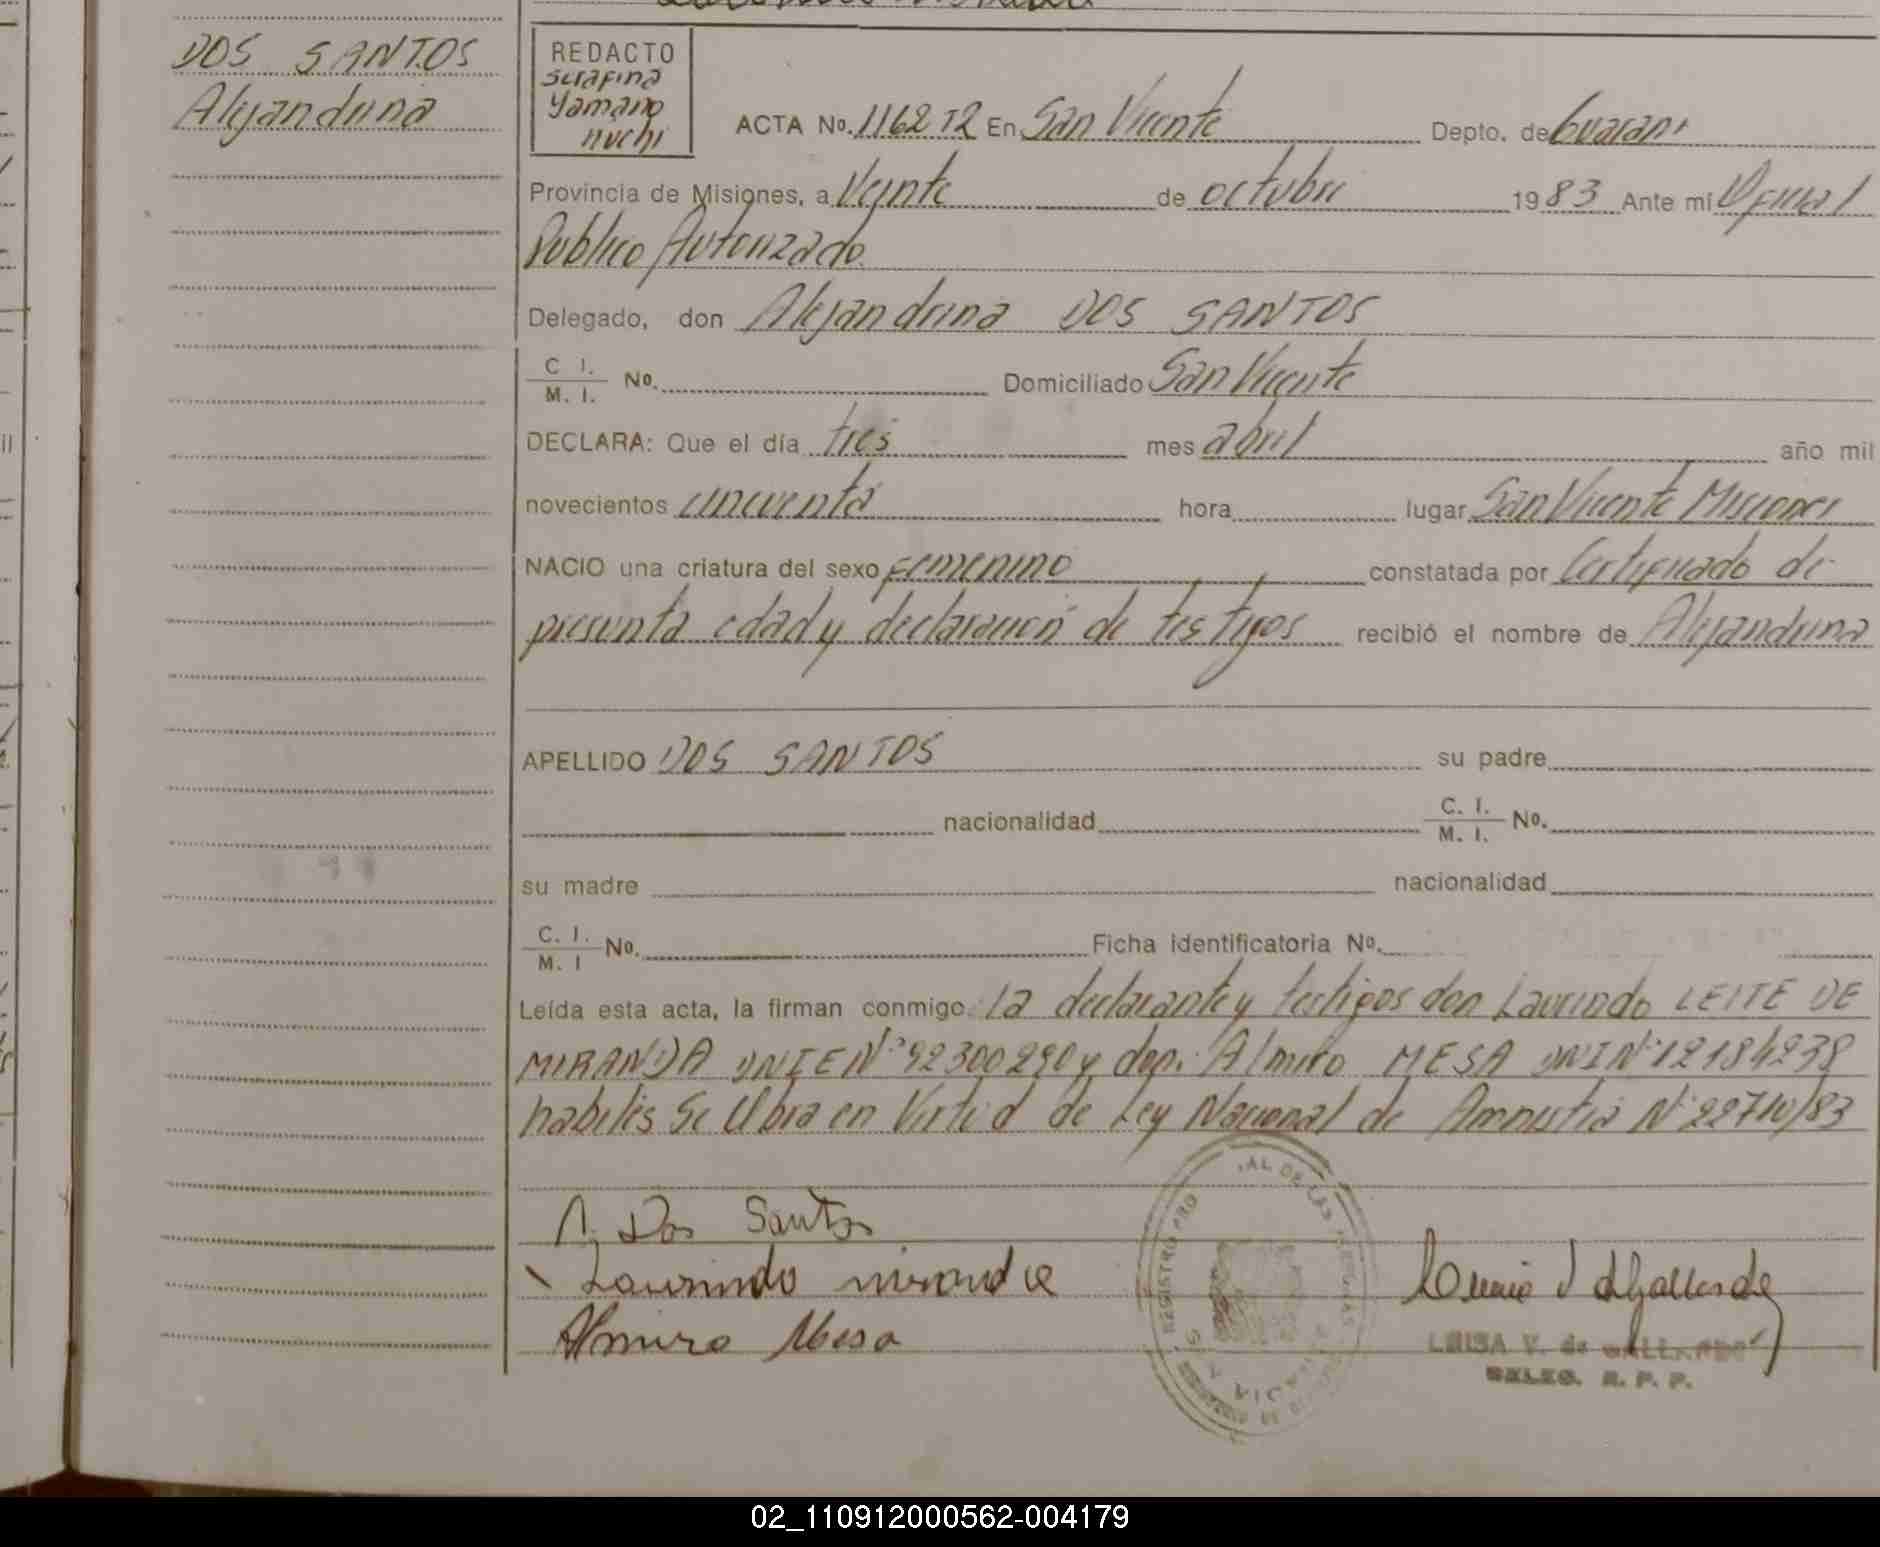 DOS SANTOS
Alejandrina
REDACTO
Serafina
Yamano
nuchi
ACTA No. 1162 T2 En San Vicente Depto. de Guarani
Provincia de Misiones, a Veinte de octubre 1983 Ante mí Oficial
Publico Autorizado.
Delegado, don Alejandrina DOS SANTOS
C I.
M. I. No. Domiciliado San Vicente
DECLARA: Que el día tres mes abril año mil
novecientos cincuenta hora lugar San Vicente Misiones
NACIO una criatura del sexo Femenino constatada por Certificado de
presunta edad y declaración de testigos recibió el nombre de Alejandrina
APELLIDO DOS SANTOS su padre
nacionalidad C. I.
M. I. No.
su madre nacionalidad
C. I.
M. I No. Ficha identificatoria No.
Leída esta acta, la firman conmigo la declarante y testigos don Laurindo LEITE DE
MIRANDA DNIE N° 92300290 y don: Almiro MESA DNI N° 12184238
habiles Se labra en Virtud de Ley Nacional de Amnistia N° 22710/83
A. Dos Santos
Laurindo miranda
Almiro Mesa
LUISA V. de GALLARDO
DELEG. R. P. P.
02_110912000562-004179